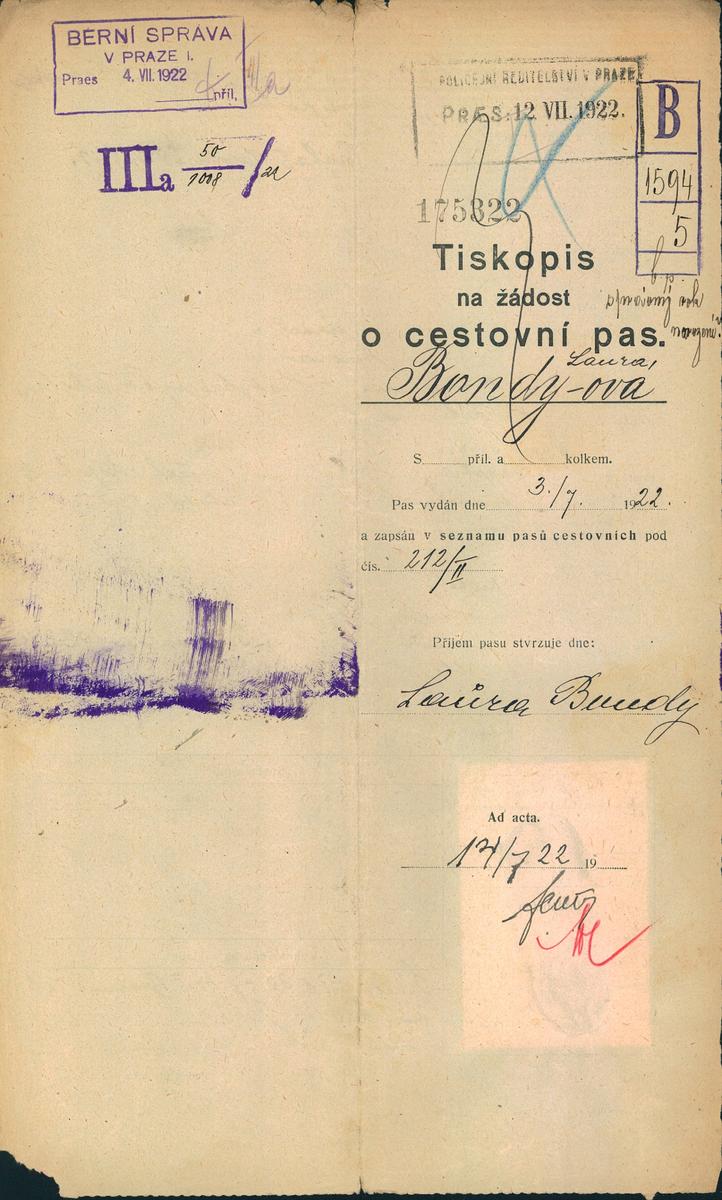 BERNÍ SPRÁVA
V PRAZE I.
Praes 4. VII. 1922
příl,
IIIa 50/1008 /22
POLICEJNÍ ŘEDITELSTVÍ V PRAZE
PRÆS: 12 VII. 1922.
B
1594
5
175322
Tiskopis
na žádost
o cestovní pas.
Laura,
Bondy-ová
S příl. a kolkem.
Pas vydán dne 3./7. 1922.
a zapsán v seznamu pasů cestovních pod
čís. 212/II
Příjem pasu stvrzuje dne:
Laura Bondy
Ad acta.
14/7 22 19